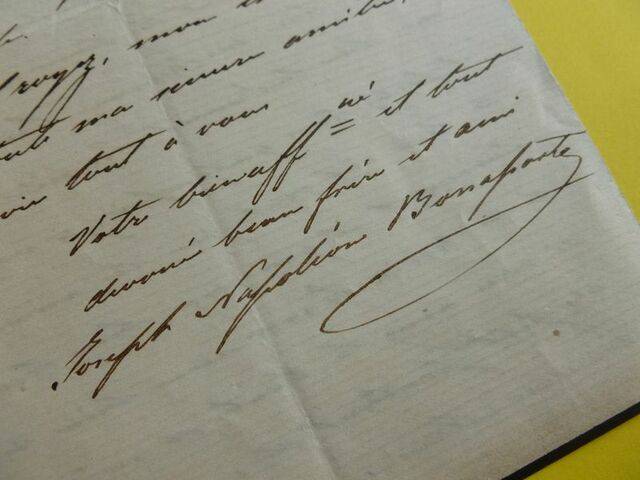 Croyez, mon
toute ma sincere amitié,
tout à vous
Votre bienaff né et tout
devoué beau frère et ami
Joseph Napoléon Bonaparte